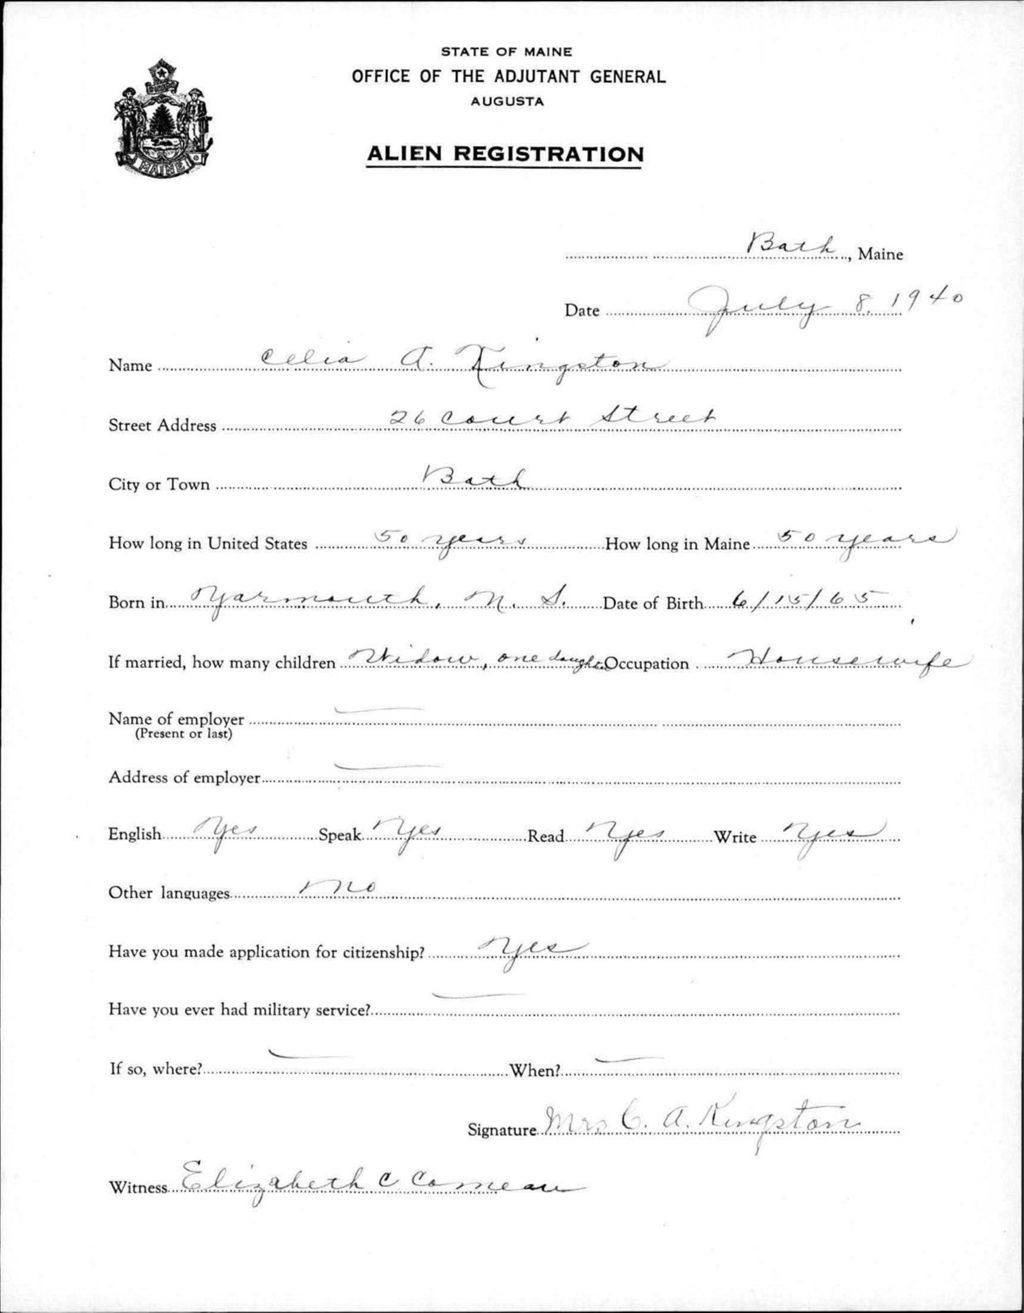 STATE OF MAINE
OFFICE OF THE ADJUTANT GENERAL
AUGUSTA
ALIEN REGISTRATION
MAINE
Bath, Maine
Date July 8, 1940
Name Celia A. Kingston
Street Address 26 Court Street
City or Town Bath
How long in United States 50 years How long in Maine 50 years
Born in Yarmouth, N. S. Date of Birth 6/15/65
If married, how many children Widow, one daught. Occupation Housewife
Name of employer
(Present or last)
Address of employer
English Yes Speak Yes Read Yes Write Yes
Other languages No
Have you made application for citizenship? Yes
Have you ever had military service?
If so, where? When?
Signature Mrs C. A. Kingston
Witness Elizabeth C Comeau